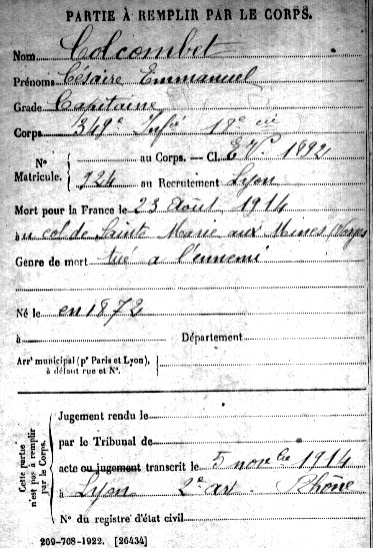 PARTIE À REMPLIR PAR LE CORPS.
Nom Colcombet
Prénoms Césaire Emmanuel
Grade Capitaine
Corps 349e Infie 18e cie
N° Matricule. { au Corps. — Cl. E.V. 1892
924 au Recrutement Lyon
Mort pour la France le 23 Août 1914
au col de Sainte Marie aux Mines (Vosges
Genre de mort tué a l'ennemi
Né le en 1872
à Département
Arrt municipal (pr Paris et Lyon),
à défaut rue et N°.
Cette partie
n'est pas à remplir
par le Corps.
Jugement rendu le
par le Tribunal de
acte ou jugement transcrit le 5 novbre 1914
à Lyon 2e arr. Rhône
N° du registre d'état civil
269-708-1922. [26434]